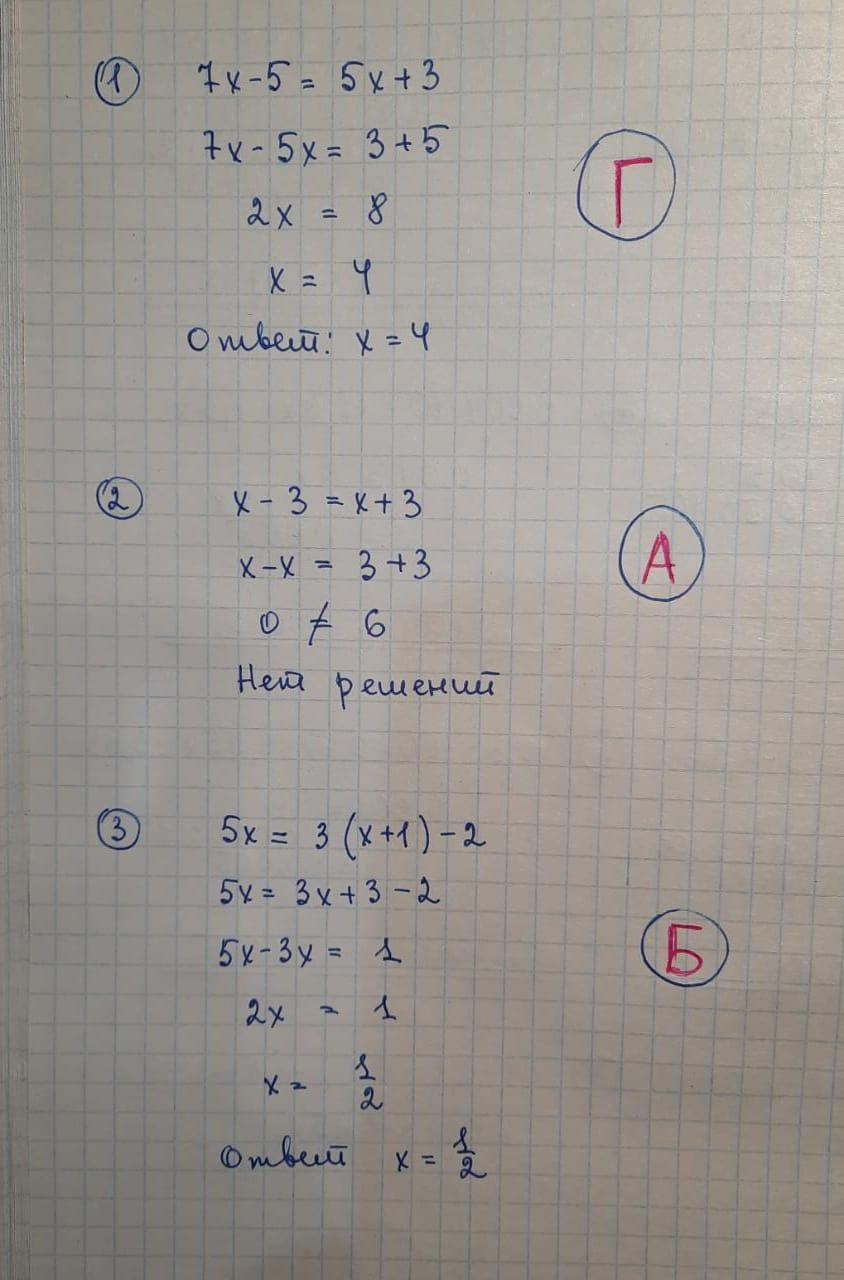 ① 7x-5 = 5x+3
7x - 5x = 3+5
Г
2x = 8
x = 4
Ответ: x = 4
② x - 3 = x+3
x-x = 3+3
А
0 ≠ 6
Нет решений
③ 5x = 3 (x+1) -2
5x = 3x+3 -2
5x-3x = 1
Б
2x = 1
x = 1/2
Ответ x = 1/2